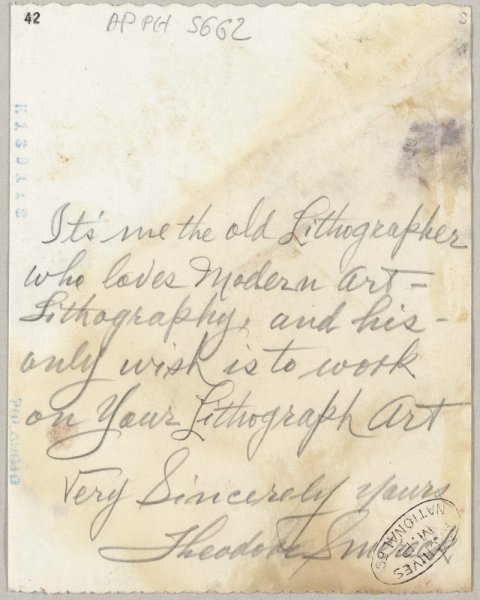 42
APPH 5662
It's me the old Lithographer
who loves Modern Art =
Lithography, and his -
only wish is to work
on Your Lithograph Art
Very Sincerely yours
Theodore
ARCHIVES
NATIONALES
M.P.